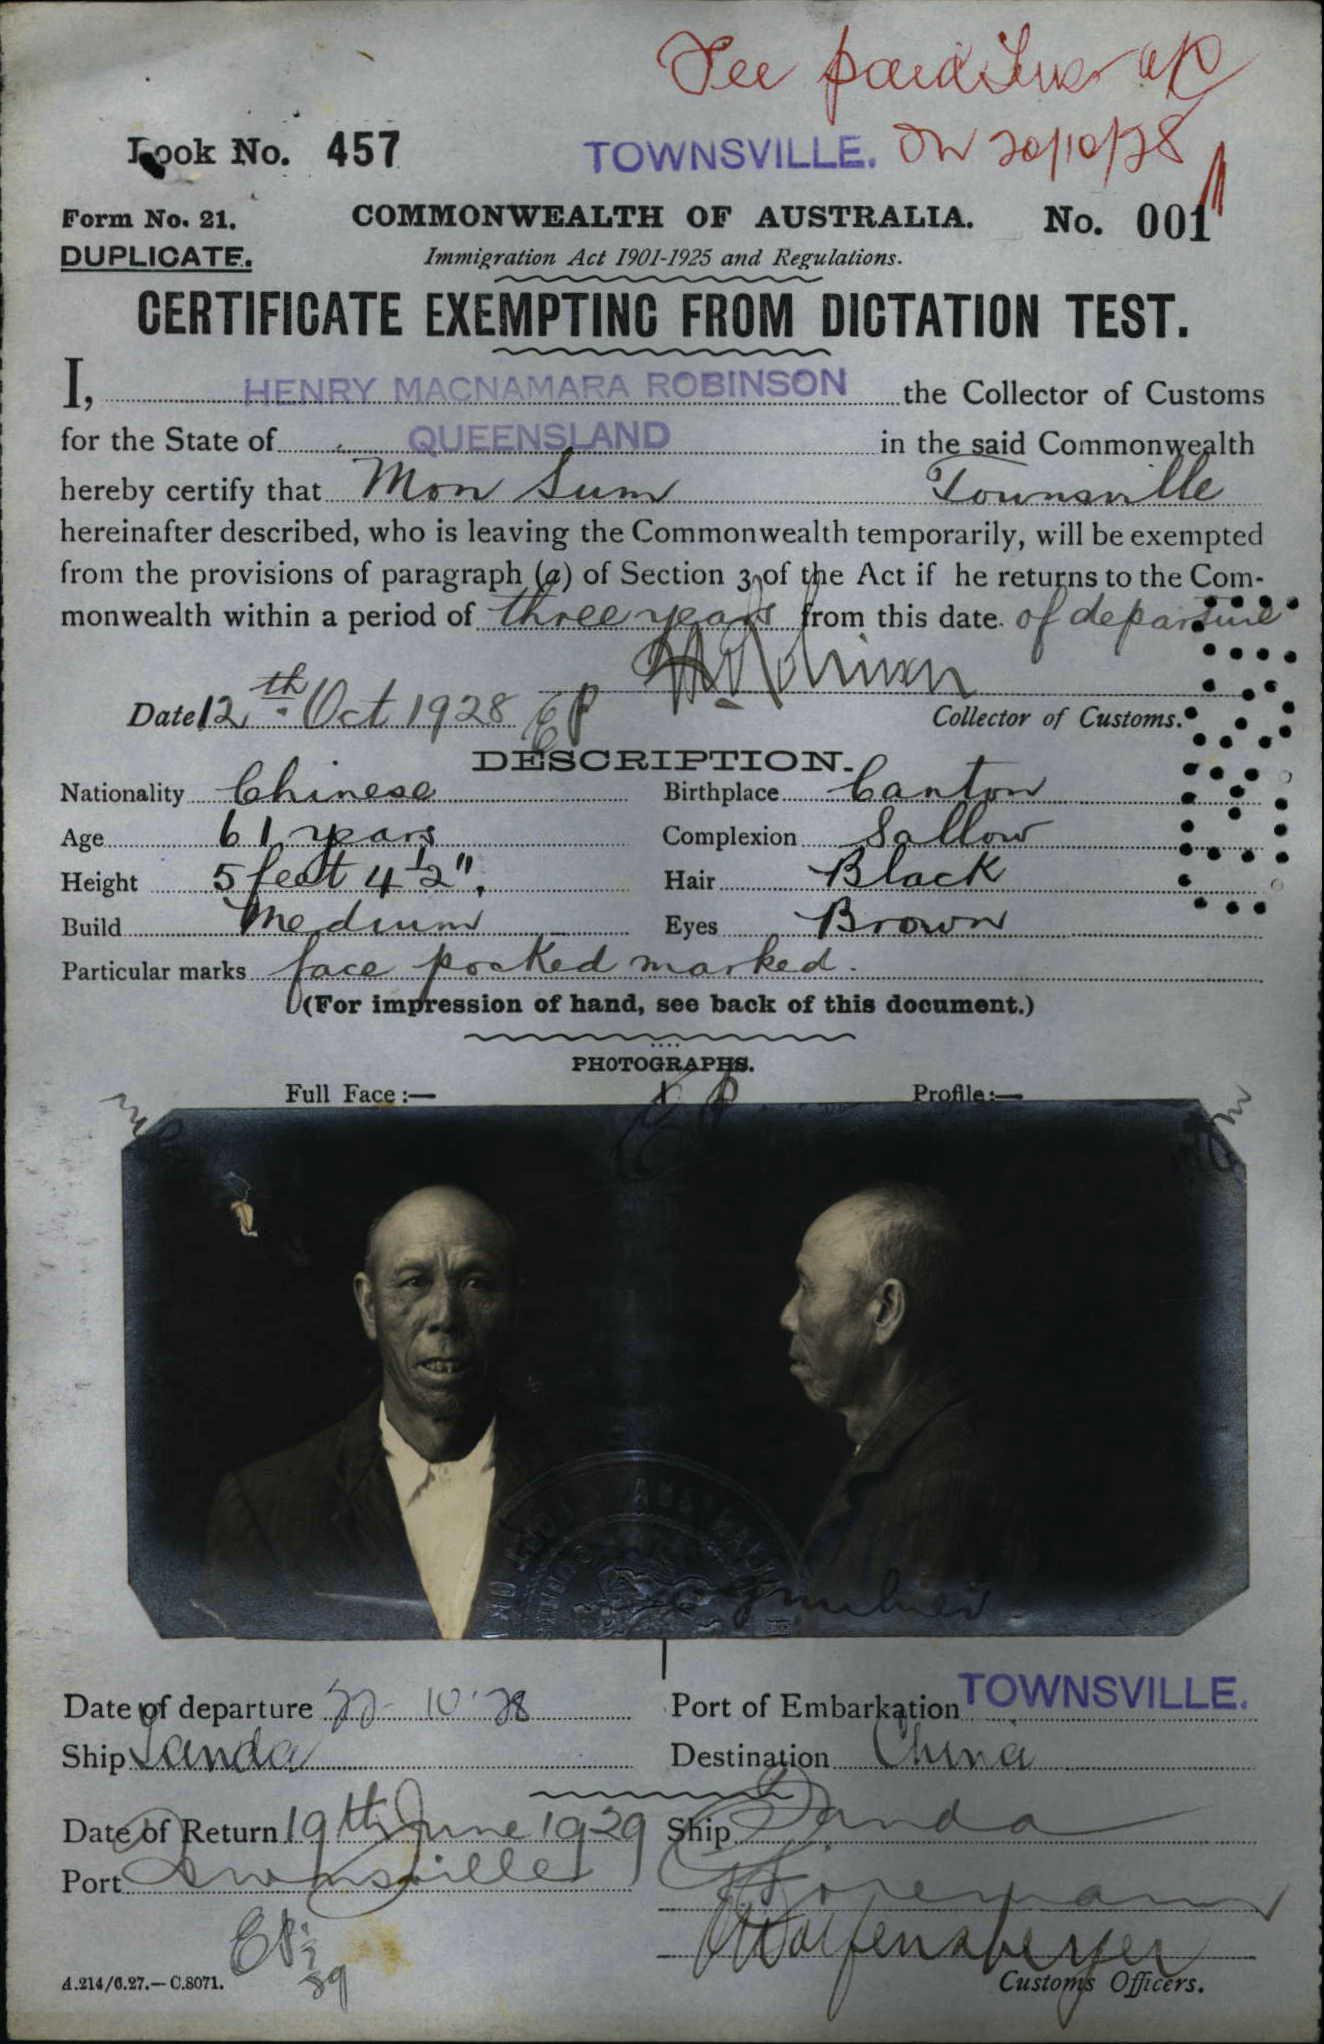 Fee paid
Book No. 457
TOWNSVILLE. on 20/10/28
Form No. 21. COMMONWEALTH OF AUSTRALIA. No. 001
DUPLICATE. Immigration Act 1901-1925 and Regulations.
CERTIFICATE EXEMPTING FROM DICTATION TEST.
I, HENRY MACNAMARA ROBINSON the Collector of Customs
for the State of QUEENSLAND in the said Commonwealth
hereby certify that Mon Sum Townsville
hereinafter described, who is leaving the Commonwealth temporarily, will be exempted
from the provisions of paragraph (a) of Section 3 of the Act if he returns to the Com-
monwealth within a period of three years from this date of departure
Date 12th Oct 1928
Collector of Customs.
DESCRIPTION.
Nationality Chinese Birthplace Canton
Age 61 years Complexion Sallow
Height 5 feet 4 1/2". Hair Black
Build Medium Eyes Brown
Particular marks face pocked marked.
(For impression of hand, see back of this document.)
PHOTOGRAPHS.
Full Face :— Profile :—
Date of departure 22-10-28 Port of Embarkation TOWNSVILLE.
Ship Tanda Destination China
Date of Return 19th June 1929 Ship Tanda
Port Townsville
A.214/6.27.—C.8071. Customs Officers.